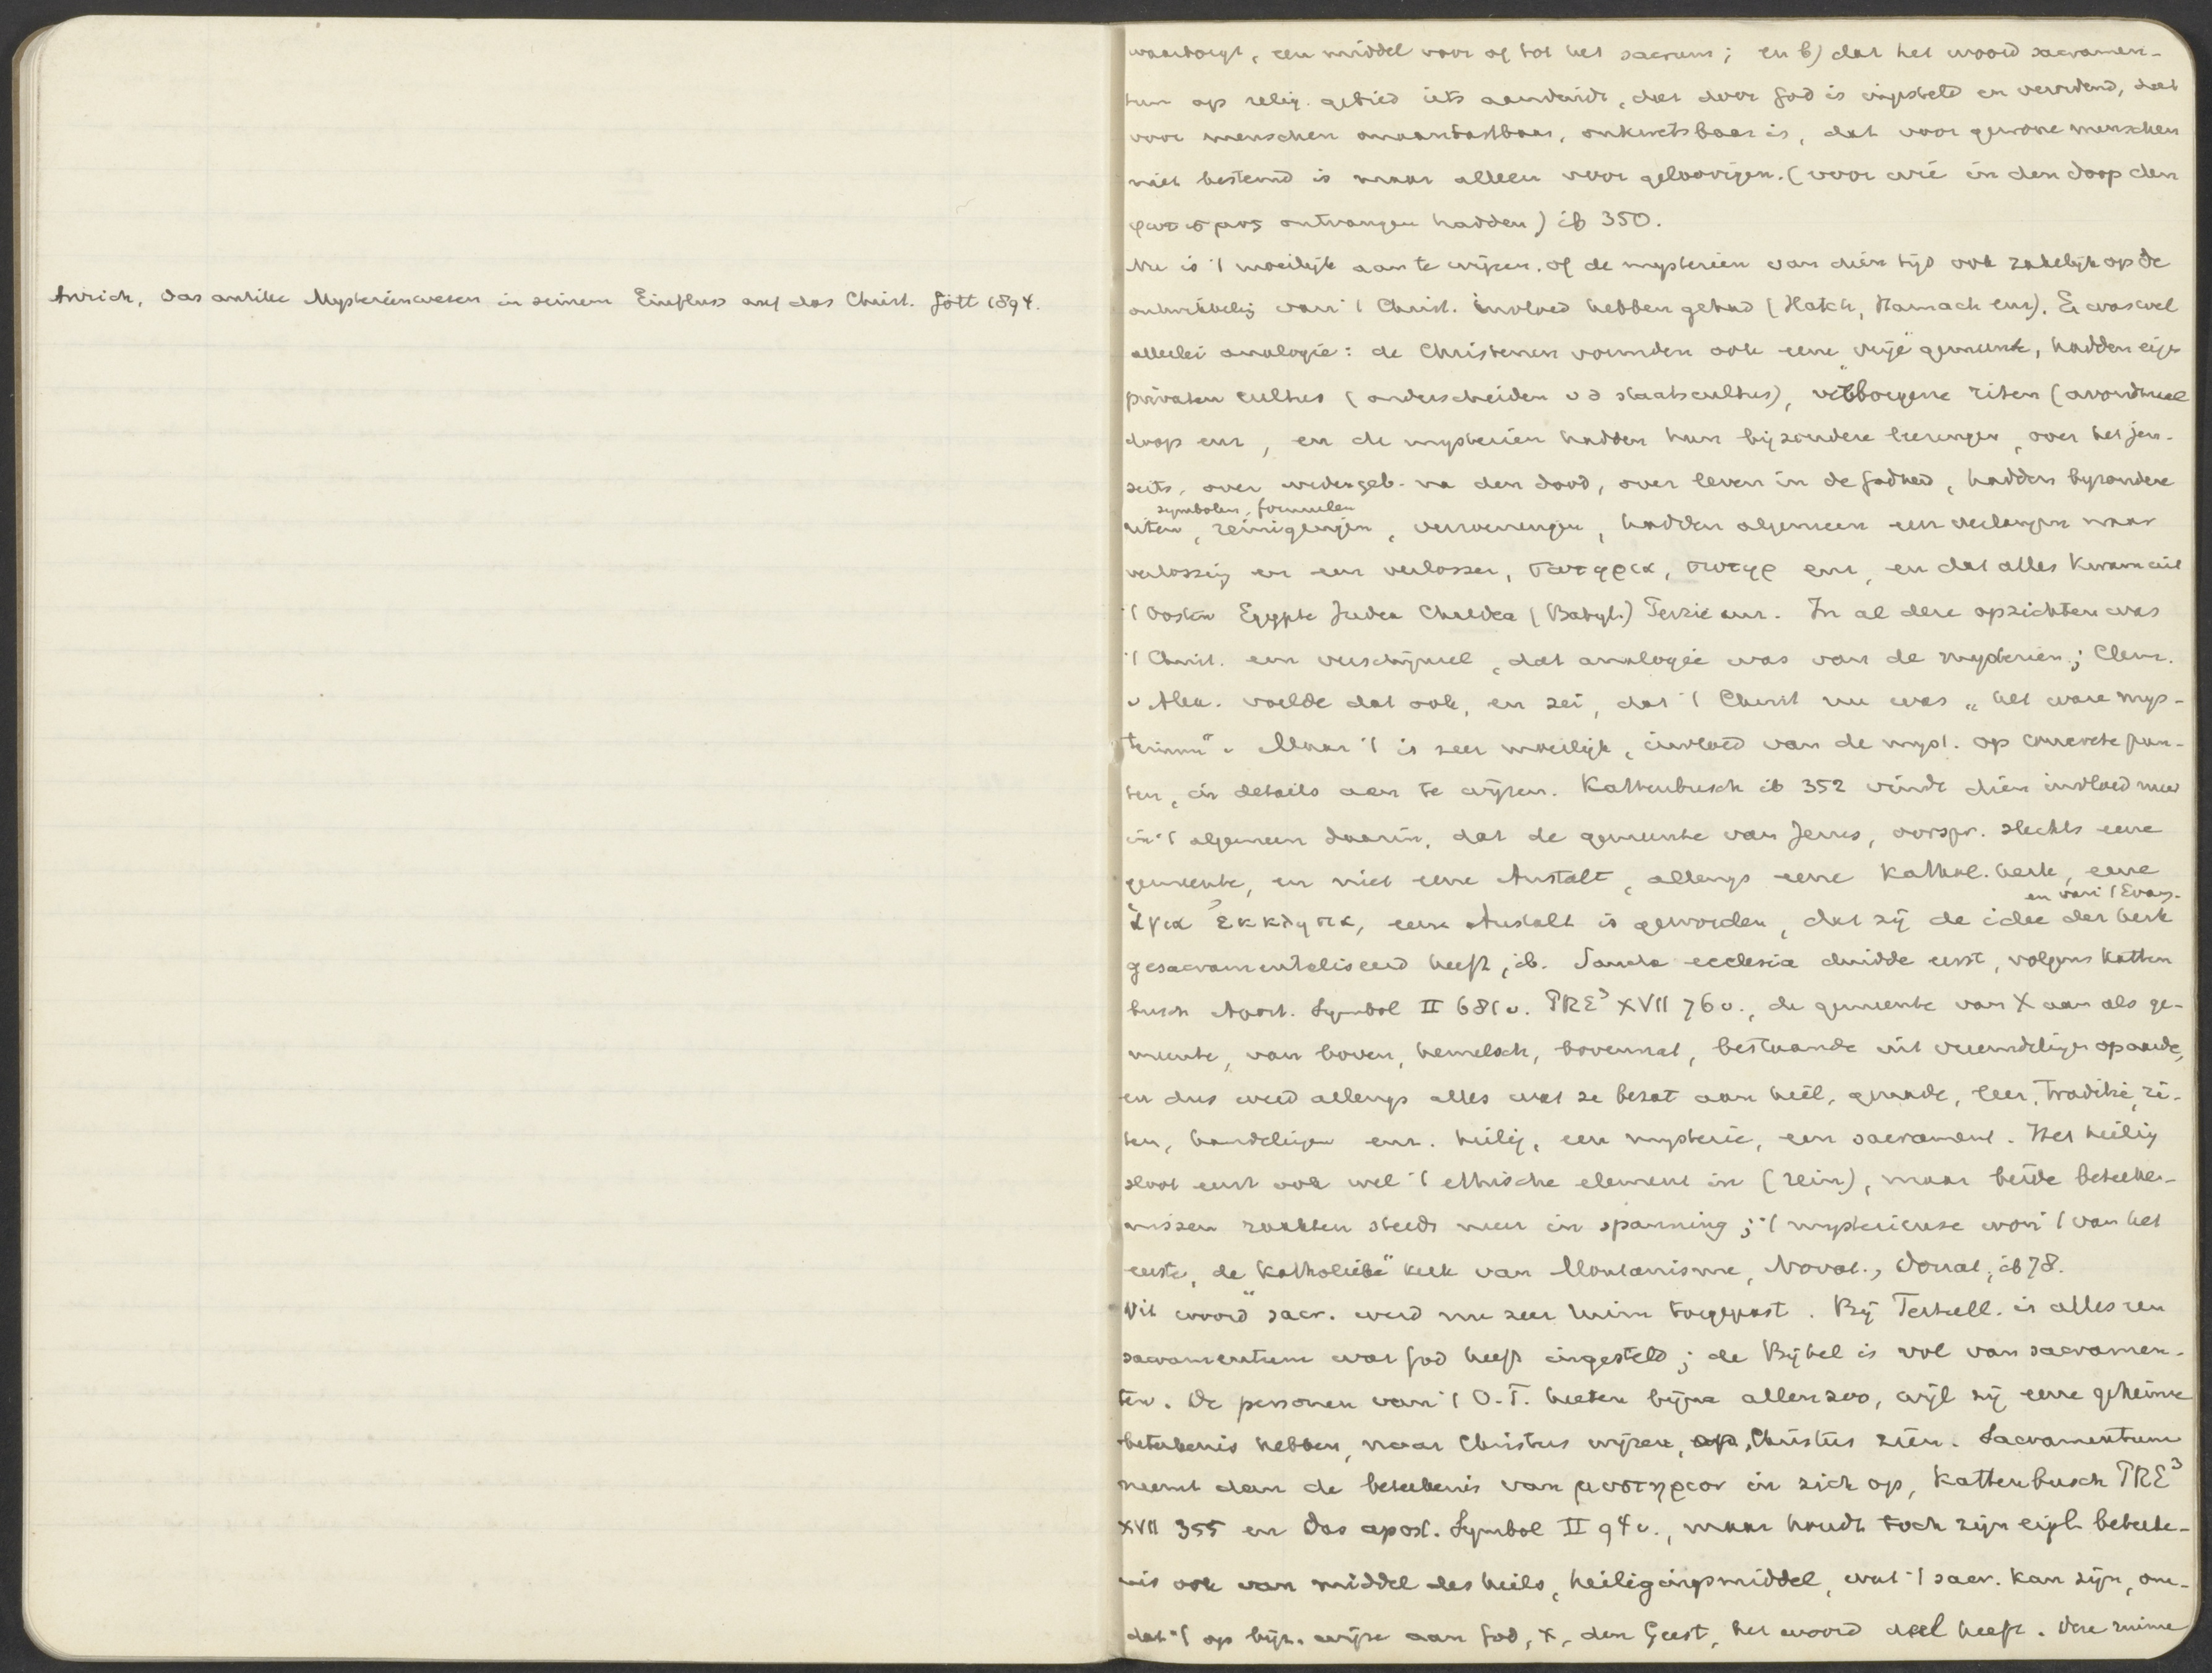 Anrich, Das antike Mysterienwesen in seinem Einfluss auf das Christ. Gött 1894.
waarborgt, een middel voor of tot het sacrum; en b) dat het woord sacramen-
tum op relig. gebied iets aanduidt, dat door God is ingesteld en verordend, dat
voor menschen onaantastbaar, onkwetsbaar is, dat voor gewone menschen
niet bestemd is maar alleen voor geloovigen. (voor wie in den doop den
φωτισμος ontvangen hadden) ib 350.
Nu is 't moeilijk aan te wijzen, of de mysteriën van dien tijd ook zakelijk op de
ontwikkelig van 't Christ. invloed hebben gehad (Hatch, Harnack enz). Er was wel
allerlei analogie: de Christenen vormden ook eene "vrije" gemeente, hadden eigen
privaten cultus (onderscheiden v d staatscultus), verborgene riten (avondmaal
doop enz, en de mysteriën hadden hun bijzondere leeringen, over het jen-
seits, over wedergeb. na den dood, over leven in de Godheid, hadden byzondere
symbolen, formulen
riten, reinigingen, verzoeningen, hadden algemeen een verlangen naar
verlossing en een verlosser, σωτηρια, σωτηρ enz, en dat alles kwam uit
't Oosten Egypte Judea Chaldea (Babyl.) Perzie enz. In al deze opzichten was
't Christ. een verschijnsel, dat analogie was van de mysteriën; Clem.
v Alex. voelde dat ook, en zei, dat 't Christ nu was „het ware mys-
terium". Maar 't is zeer moeilijk, invloed van de myst. op concrete pun-
ten, in details aan te wijzen. Kattenbusch ib 352 vindt dien invloed meer
in 't algemeen daarin, dat de gemeente van Jezus, oorspr. slechts eene
gemeente, en niet eene Anstalt, allengs eene Kathol. kerk, eene
en van 't Evang.
ἁγια ἐκκλησια, eene Anstalt is geworden, dat zij de idee der kerk
gesacramentaliseerd heeft, ib. Sancta ecclesia duidde eerst, volgens Katten
busch Apost. Symbol II 681 v. PRE³ XVII 76 v., de gemeente van X aan als ge-
meente, van boven, hemelsch, bovennat, bestaande uit vreemdelingen op aarde,
en dus werd allengs alles wat ze bezat aan heil, genade, leer, traditie, ri-
ten, handelingen enz. heilig, een mysterie, een sacrament. Het heilig
sloot eerst ook wel 't ethische element in (rein), maar beide beteeke-
nissen raakten steeds meer in spanning; 't mysterieuse won 't van het
eerste, de "Katholieke" kerk van Montanisme, Novat., Donat., ib 78.
Dit woord "sacr. werd nu zeer ruim toegepast. Bij Tertull. is alles een
sacramentum wat God heeft ingesteld; de Bijbel is vol van sacramen-
ten. De personen van 't O.T. heeten bijna allen zoo, wijl zij eene geheime
beteekenis hebben, naar Christus wijzen, op Christus zien. Sacramentum
neemt dan de beteekenis van μυστηριον in zich op, Kattenbusch PRE³
XVII 355 en Das apost. Symbol II 94 v., maar houdt toch zijn eigl. beteeke-
nis ook van middel des heils, heiligingsmiddel, wat 't sacr. kan zijn, om-
dat 't op bijz. wijze aan God, X, den Geest, het woord deel heeft. Deze ruime